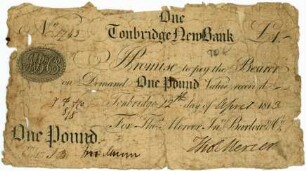 One
No. 1763 Tonbridge New Bank £1
I Promise to pay the Bearer
on Demand One Pound Value receiv'd
Tonbridge 12th day of April 1813
For Thos. Mercer Jno. Barlow & Co.
One Pound
Thos Mercer